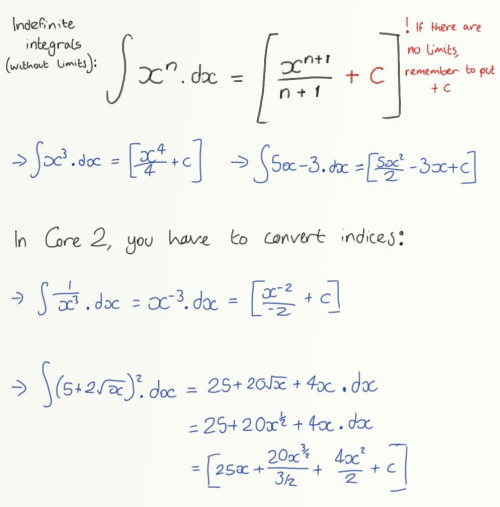 Indefinite integrals (without limits): ∫ xⁿ . dx = [ xⁿ⁺¹/n + 1 + C ]
! If there are no limits, remember to put + C
→ ∫x³ . dx = [x⁴/4 + c] → ∫5x - 3 . dx = [5x²/2 - 3x + c]
In Core 2, you have to convert indices:
→ ∫ 1/x³ . dx = x⁻³ . dx = [x⁻²/-2 + c]
→ ∫(5 + 2√x)² . dx = 25 + 20√x + 4x . dx
= 25 + 20x^½ + 4x . dx
= [25x + 20x^3/2 / 3/2 + 4x²/2 + c]